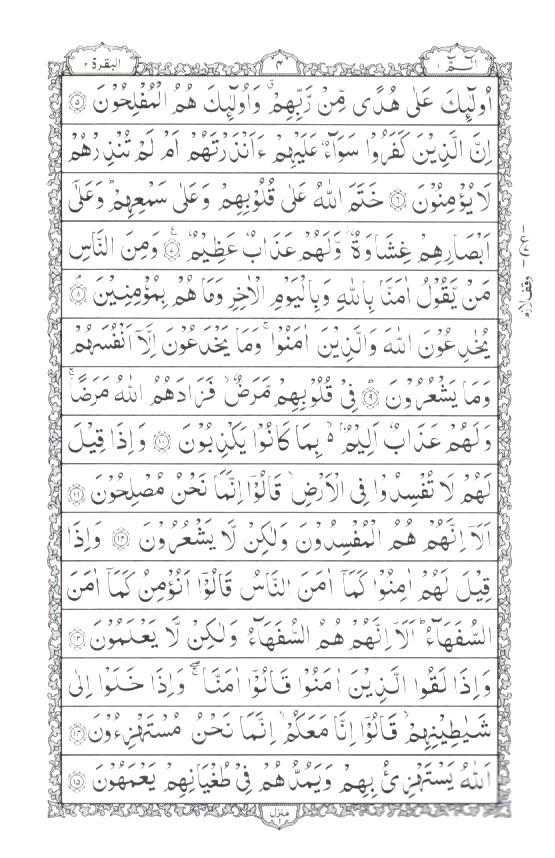 الٓمّٓ ١
٤
البقرة ٢
اُولٰٓئِكَ عَلٰى هُدًى مِّنْ رَّبِّهِمْ ۙ وَاُولٰٓئِكَ هُمُ الْمُفْلِحُوْنَ ﴿۵﴾
اِنَّ الَّذِيْنَ كَفَرُوْا سَوَآءٌ عَلَيْهِمْ ءَاَنْذَرْتَهُمْ اَمْ لَمْ تُنْذِرْهُمْ
لَا يُؤْمِنُوْنَ ﴿۶﴾ خَتَمَ اللّٰهُ عَلٰى قُلُوْبِهِمْ وَعَلٰى سَمْعِهِمْ ؕ وَعَلٰٓى
اَبْصَارِهِمْ غِشَاوَةٌ ۫ وَّلَهُمْ عَذَابٌ عَظِيْمٌ ﴿۷﴾ ع وَمِنَ النَّاسِ
مَنْ يَّقُوْلُ اٰمَنَّا بِاللّٰهِ وَبِالْيَوْمِ الْاٰخِرِ وَمَا هُمْ بِمُؤْمِنِيْنَ ﴿۸﴾ ۘ
يُخٰدِعُوْنَ اللّٰهَ وَالَّذِيْنَ اٰمَنُوْا ۚ وَمَا يَخْدَعُوْنَ اِلَّاۤ اَنْفُسَهُمْ
وَمَا يَشْعُرُوْنَ ﴿۹﴾ ؕ فِيْ قُلُوْبِهِمْ مَّرَضٌ ۙ فَزَادَهُمُ اللّٰهُ مَرَضًا ۚ
وَلَهُمْ عَذَابٌ اَلِيْمٌۢ ۙ۬ بِمَا كَانُوْا يَكْذِبُوْنَ ﴿۱۰﴾ وَاِذَا قِيْلَ
لَهُمْ لَا تُفْسِدُوْا فِى الْاَرْضِ ۙ قَالُوْۤا اِنَّمَا نَحْنُ مُصْلِحُوْنَ ﴿۱۱﴾
اَلَاۤ اِنَّهُمْ هُمُ الْمُفْسِدُوْنَ وَلٰكِنْ لَّا يَشْعُرُوْنَ ﴿۱۲﴾ وَاِذَا
قِيْلَ لَهُمْ اٰمِنُوْا كَمَاۤ اٰمَنَ النَّاسُ قَالُوْۤا اَنُؤْمِنُ كَمَاۤ اٰمَنَ
السُّفَهَآءُ ؕ اَلَاۤ اِنَّهُمْ هُمُ السُّفَهَآءُ وَلٰكِنْ لَّا يَعْلَمُوْنَ ﴿۱۳﴾
وَاِذَا لَقُوا الَّذِيْنَ اٰمَنُوْا قَالُوْۤا اٰمَنَّا ۖۚ وَاِذَا خَلَوْا اِلٰى
شَيٰطِيْنِهِمْ ۙ قَالُوْۤا اِنَّا مَعَكُمْ ۙ اِنَّمَا نَحْنُ مُسْتَهْزِءُوْنَ ﴿۱۴﴾
اَللّٰهُ يَسْتَهْزِئُ بِهِمْ وَيَمُدُّهُمْ فِيْ طُغْيَانِهِمْ يَعْمَهُوْنَ ﴿۱۵﴾
وقف لازم
منزل ١